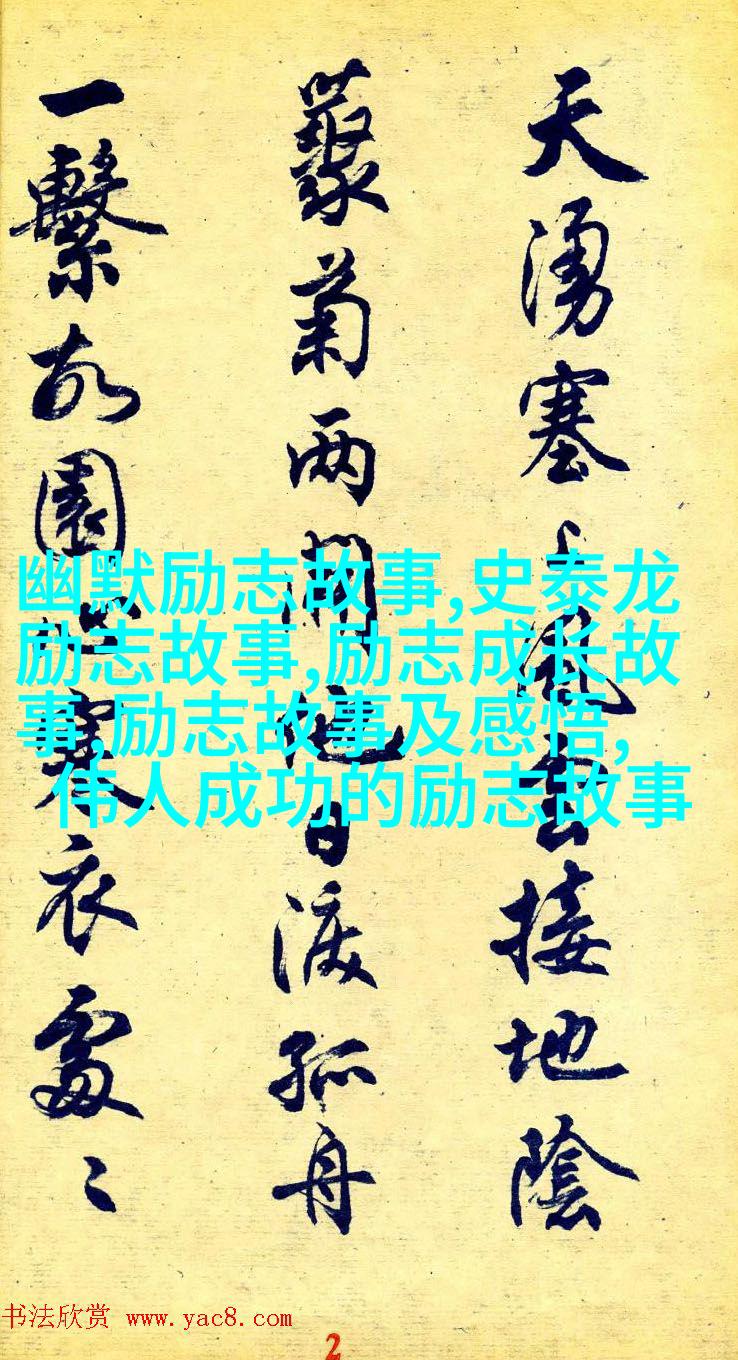 天湧塞上風雲接地陰
藂菊两開他日淚孤舟
一繫故園心寒衣處〻
幽默励志故事,史泰龙
励志故事,励志成长故
事,励志故事及感悟,
伟人成功的励志故事
书法欣赏 www.yac8.com
2